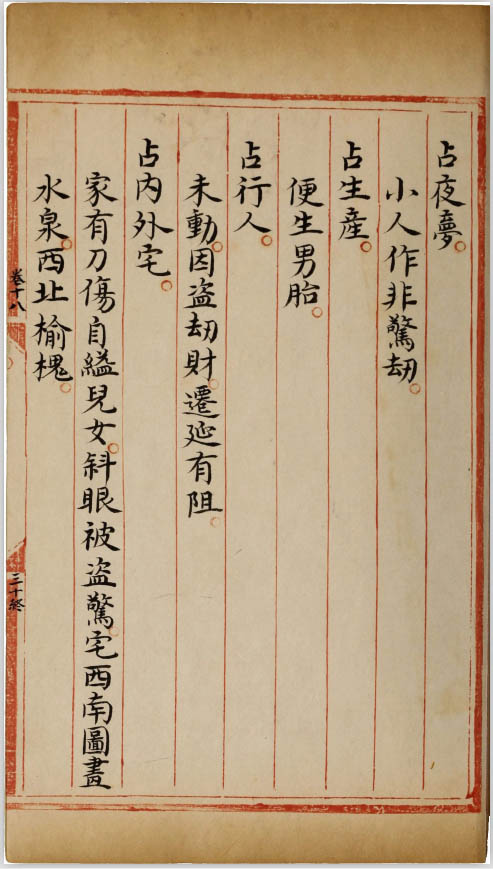 占夜夢
小人作非驚劫
占生產
便生男胎
占行人
未動因盗劫財遷延有阻
占内外宅
家有刀傷自縊兒女斜眼被盗驚宅西南圖畫
水泉西北榆槐
卷十八
三十終